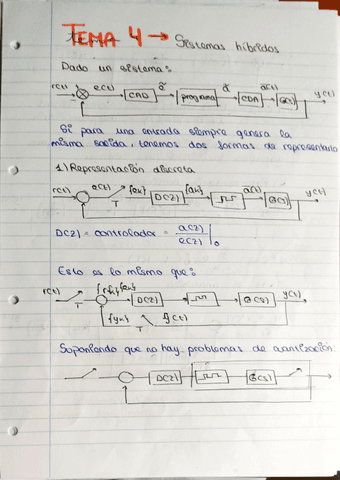 TEMA 4 → Sistemas híbridos
Dado un sistema:
r(t) e(t) CAD programa CDA G(s) y(t)
Si para una entrada siempre genera la
misma salida, tenemos dos formas de representarlo
1) Representación discreta
r(t) e(t) T {ek} D(z) {ak} a(t) G(s) y(t)
D(z) = controlador = a(z) / e(z) |0
Esto es lo mismo que:
r(t) T {rk} {ek} D(z) G(s) y(t)
{yk} T y(t)
Suponiendo que no hay problemas de cuantización:
D(z) G(s)